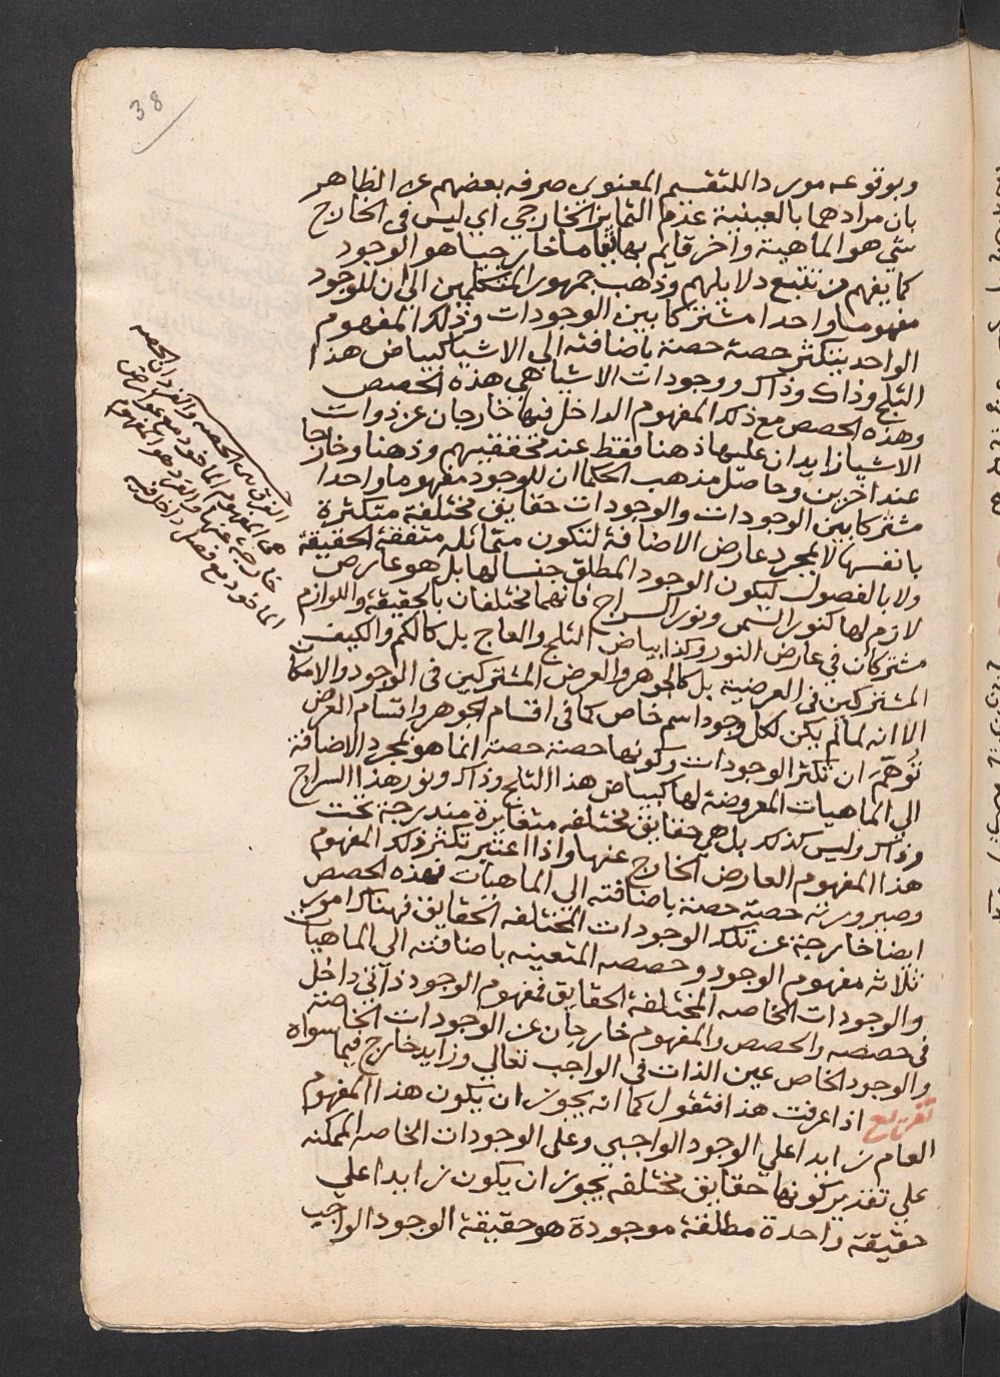 38
وبوقوعه موردا للتقسيم المعنوي صرفه بعضهم عن الظاهر
بان مرادهما بالعينية عدم التمايز الخارجي اي ليس في الخارج
شي هو الماهية واخر قايم بها قياما خارجيا هو الوجود
كما يفهم من تتبع دلايلهم وذهب جمهور المتكلمين الى ان للوجود
مفهوما واحدا مشتركا بين الوجودات وذلك المفهوم
الواحد يتكثر حصة حصة باضافته الى الاشيا كبياض هذا
الثلج وذاك وذاك ووجودات الاشيا هي هذه الحصص
وهذه الحصص مع ذلك المفهوم الداخل فيها خارجان عن ذوات
الاشيا زايدان عليها ذهنا فقط عند محققيهم وذهنا وخارجا
عند اخرين وحاصل مذهب الحكما ان للوجود مفهوما واحدا
مشتركا بين الوجودات والوجودات حقايق مختلفة متكثرة
بانفسها لا بمجرد عارض الاضافة لتكون متماثله متفقة الحقيقة
ولا بالفصول ليكون الوجود المطلق جنسا لها بل هو عارض
لازم لها كنور الشمس ونور السراج فانهما مختلفان بالحقيقة واللوازم
مشتركان في عارض النور وكذا بياض الثلج والعاج بل كالكم والكيف
المشتركين في العرضية بل كالجوهر والعرض المشتركين في الوجود والامكان
الا انه لما لم يكن لكل وجود اسم خاص كما في اقسام الجوهر واقسام العرض
توهّم ان تكثر الوجودات وكونها حصة حصة انما هو بمجرد الاضافة
الي الماهيات المعروضة لها كبياض هذا الثلج وذاك ونور هذا السراج
وذاك وليس كذلك بل هي حقايق مختلفه متغايرة مندرجة تحت
هذا المفهوم العارض الخارج عنها واذا اعتبر تكثر ذلك المفهوم
وصيرورته حصة حصة باضافته الى الماهيات فهذه الحصص
ايضا خارجة عن تلك الوجودات المختلفه الحقايق فهناك امور
ثلاثه مفهوم الوجود وحصصه المتعينه باضافته الى الماهيات
والوجودات الخاصه المختلفة الحقايق فمفهوم الوجود ذاتي داخل
في حصصه والحصص والمفهوم خارجان عن الوجودات الخاصة
والوجود الخاص عين الذات في الواجب تعالي وزايد خارج فيما سواه
تفريع اذا عرفت هذا فنقول كما انه يجوز ان يكون هذا المفهوم
العام زايدا علي الوجود الواجبي وعلى الوجودات الخاصه الممكنه
علي تقدير كونها حقايق مختلفه يجوز ان يكون زايدا على
حقيقة واحدة مطلقة موجودة هو حقيقة الوجود الواجب
الفرق بين الحصه والفرد ان الحصه
هي المفهوم الماخوذ مع عوارض
خارجة عنها والفرد هو المفهوم
الماخوذ مع فصل داخل فيه